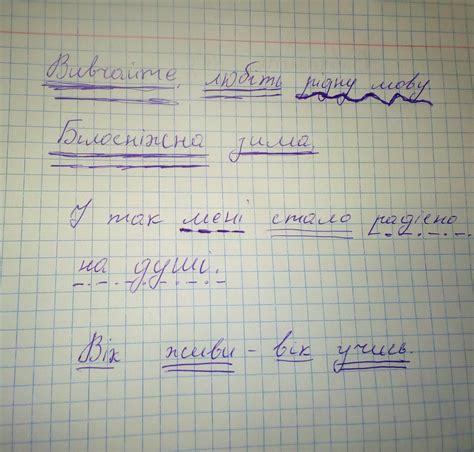 Вивчайте, любіть рідну мову.
Білосніжна зима.
І так мені стало радісно
на душі.
Вік живи - вік учись.